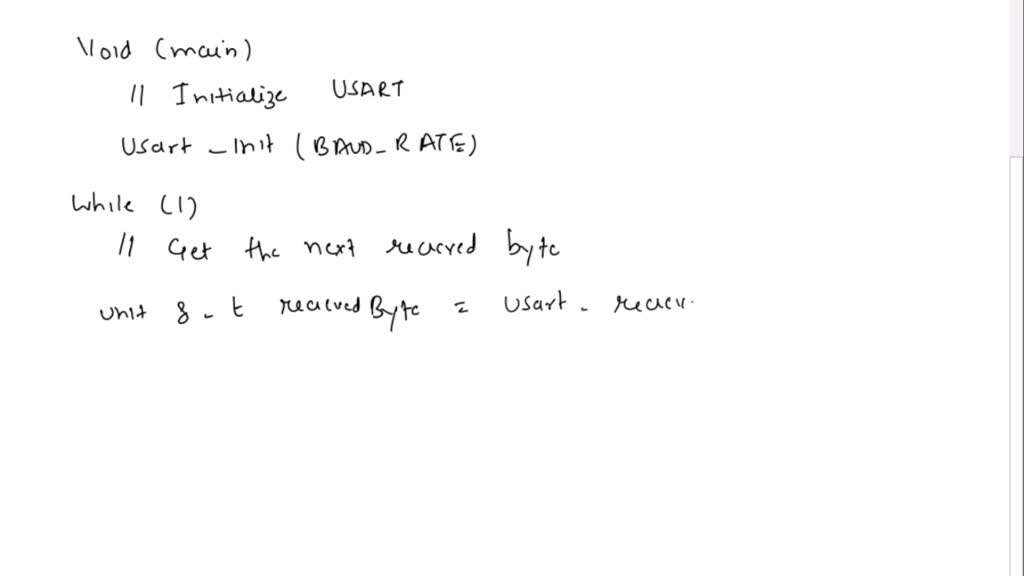 Void (main)
// Initialize USART
Usart _Init (BAUD_RATE)
While (1)
// Get the next recieved byte
unit 8_t recieved Byte = Usart_reciev.